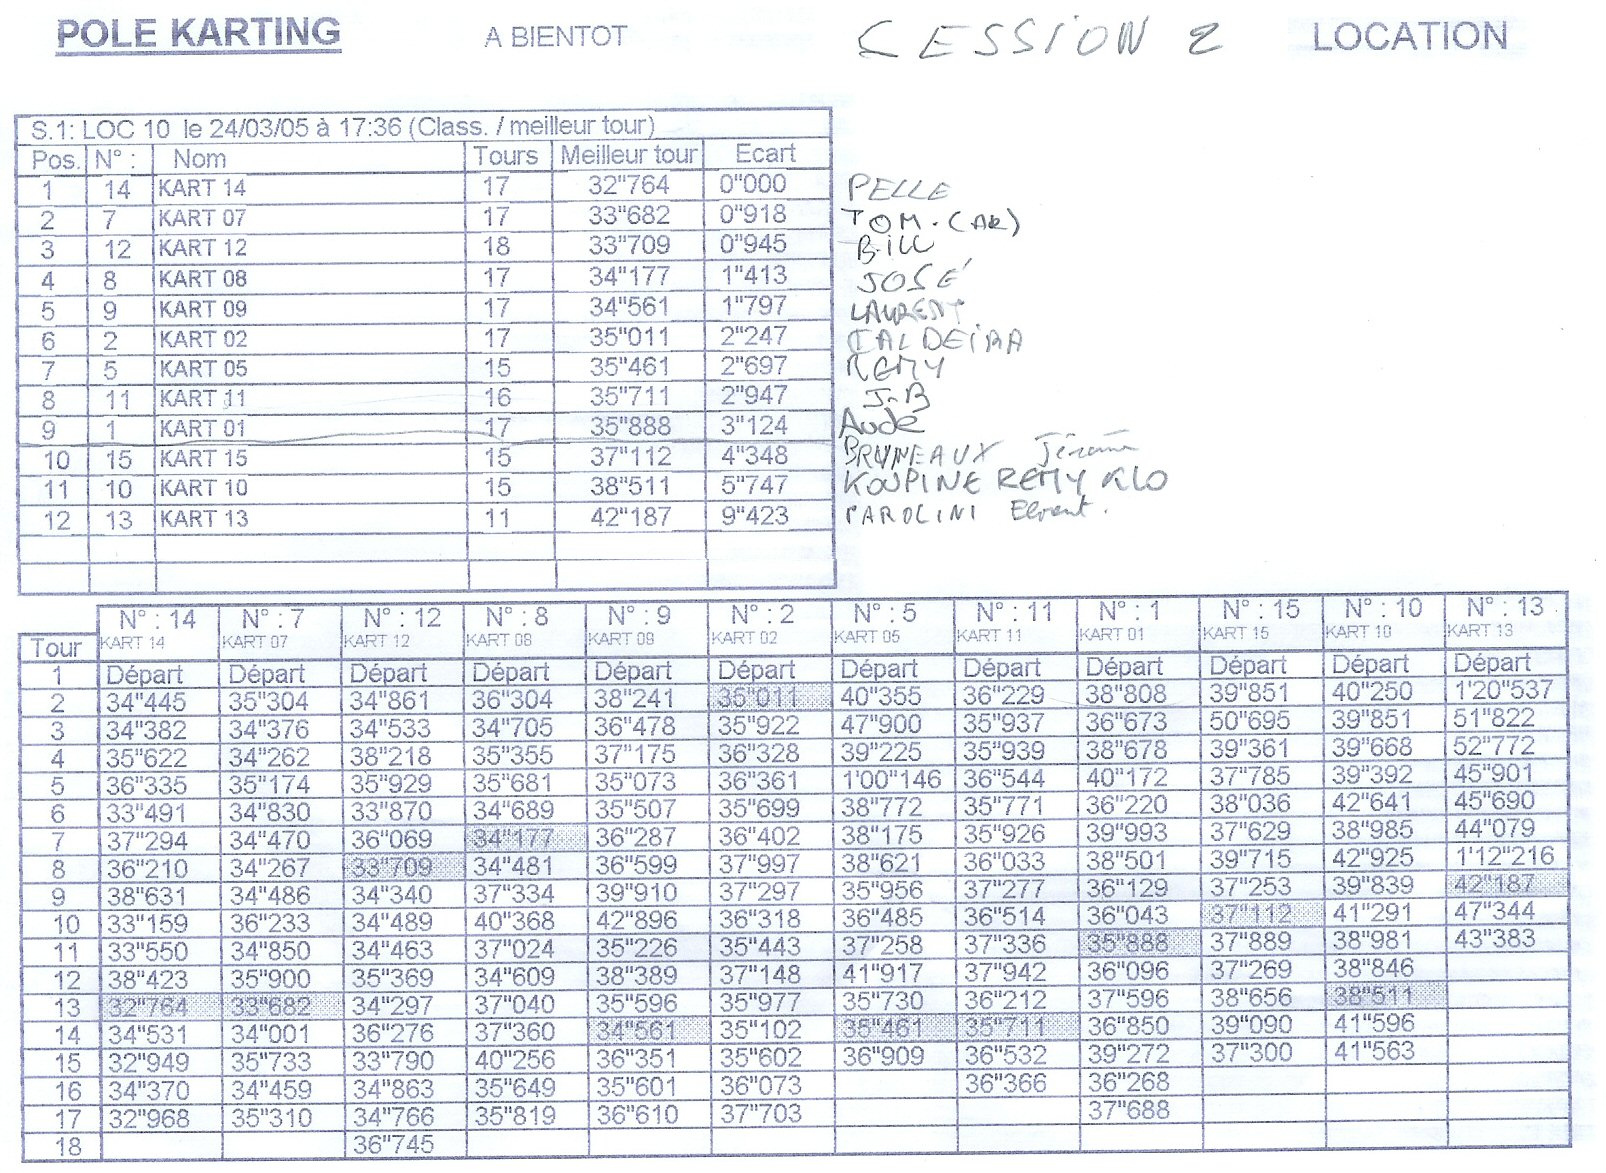 POLE KARTING A BIENTOT SESSION 2 LOCATION
S.1: LOC 10 le 24/03/05 à 17:36 (Class. / meilleur tour)
Pos. N° : Nom Tours Meilleur tour Ecart
1 14 KART 14 17 32"764 0"000 PELLE
2 7 KART 07 17 33"682 0"918 TOM. (AR)
3 12 KART 12 18 33"709 0"945 BILL
4 8 KART 08 17 34"177 1"413 JOSÉ
5 9 KART 09 17 34"561 1"797 LAURENT
6 2 KART 02 17 35"011 2"247 CALDEIRA
7 5 KART 05 15 35"461 2"697 REMY
8 11 KART 11 16 35"711 2"947 J-B
9 1 KART 01 17 35"888 3"124 Aude
10 15 KART 15 15 37"112 4"348 BRUNEAUX
11 10 KART 10 15 38"511 5"747 KOUPINE REMY KLO
12 13 KART 13 11 42"187 9"423 PAROLINI
N° : 14 N° : 7 N° : 12 N° : 8 N° : 9 N° : 2 N° : 5 N° : 11 N° : 1 N° : 15 N° : 10 N° : 13
Tour KART 14 KART 07 KART 12 KART 08 KART 09 KART 02 KART 05 KART 11 KART 01 KART 15 KART 10 KART 13
1 Départ Départ Départ Départ Départ Départ Départ Départ Départ Départ Départ Départ
2 34"445 35"304 34"861 36"304 38"241 35"011 40"355 36"229 38"808 39"851 40"250 1'20"537
3 34"382 34"376 34"533 34"705 36"478 35"922 47"900 35"937 36"673 50"695 39"851 51"822
4 35"622 34"262 38"218 35"355 37"175 36"328 39"225 35"939 38"678 39"361 39"668 52"772
5 36"335 35"174 35"929 35"681 35"073 36"361 1'00"146 36"544 40"172 37"785 39"392 45"901
6 33"491 34"830 33"870 34"689 35"507 35"699 38"772 35"771 36"220 38"036 42"641 45"690
7 37"294 34"470 36"069 34"177 36"287 36"402 38"175 35"926 39"993 37"629 38"985 44"079
8 36"210 34"267 33"709 34"481 36"599 37"997 38"621 36"033 38"501 39"715 42"925 1'12"216
9 38"631 34"486 34"340 37"334 39"910 37"297 35"956 37"277 36"129 37"253 39"839 42"187
10 33"159 36"233 34"489 40"368 42"896 36"318 36"485 36"514 36"043 37"112 41"291 47"344
11 33"550 34"850 34"463 37"024 35"226 35"443 37"258 37"336 35"888 37"889 38"981 43"383
12 38"423 35"900 35"369 34"609 38"389 37"148 41"917 37"942 36"096 37"269 38"846
13 32"764 33"682 34"297 37"040 35"596 35"977 35"730 36"212 37"596 38"656 38"511
14 34"531 34"001 36"276 37"360 34"561 35"102 35"461 35"711 36"850 39"090 41"596
15 32"949 35"733 33"790 40"256 36"351 35"602 36"909 36"532 39"272 37"300 41"563
16 34"370 34"459 34"863 35"649 35"601 36"073 36"366 36"268
17 32"968 35"310 34"766 35"819 36"610 37"703 37"688
18 36"745